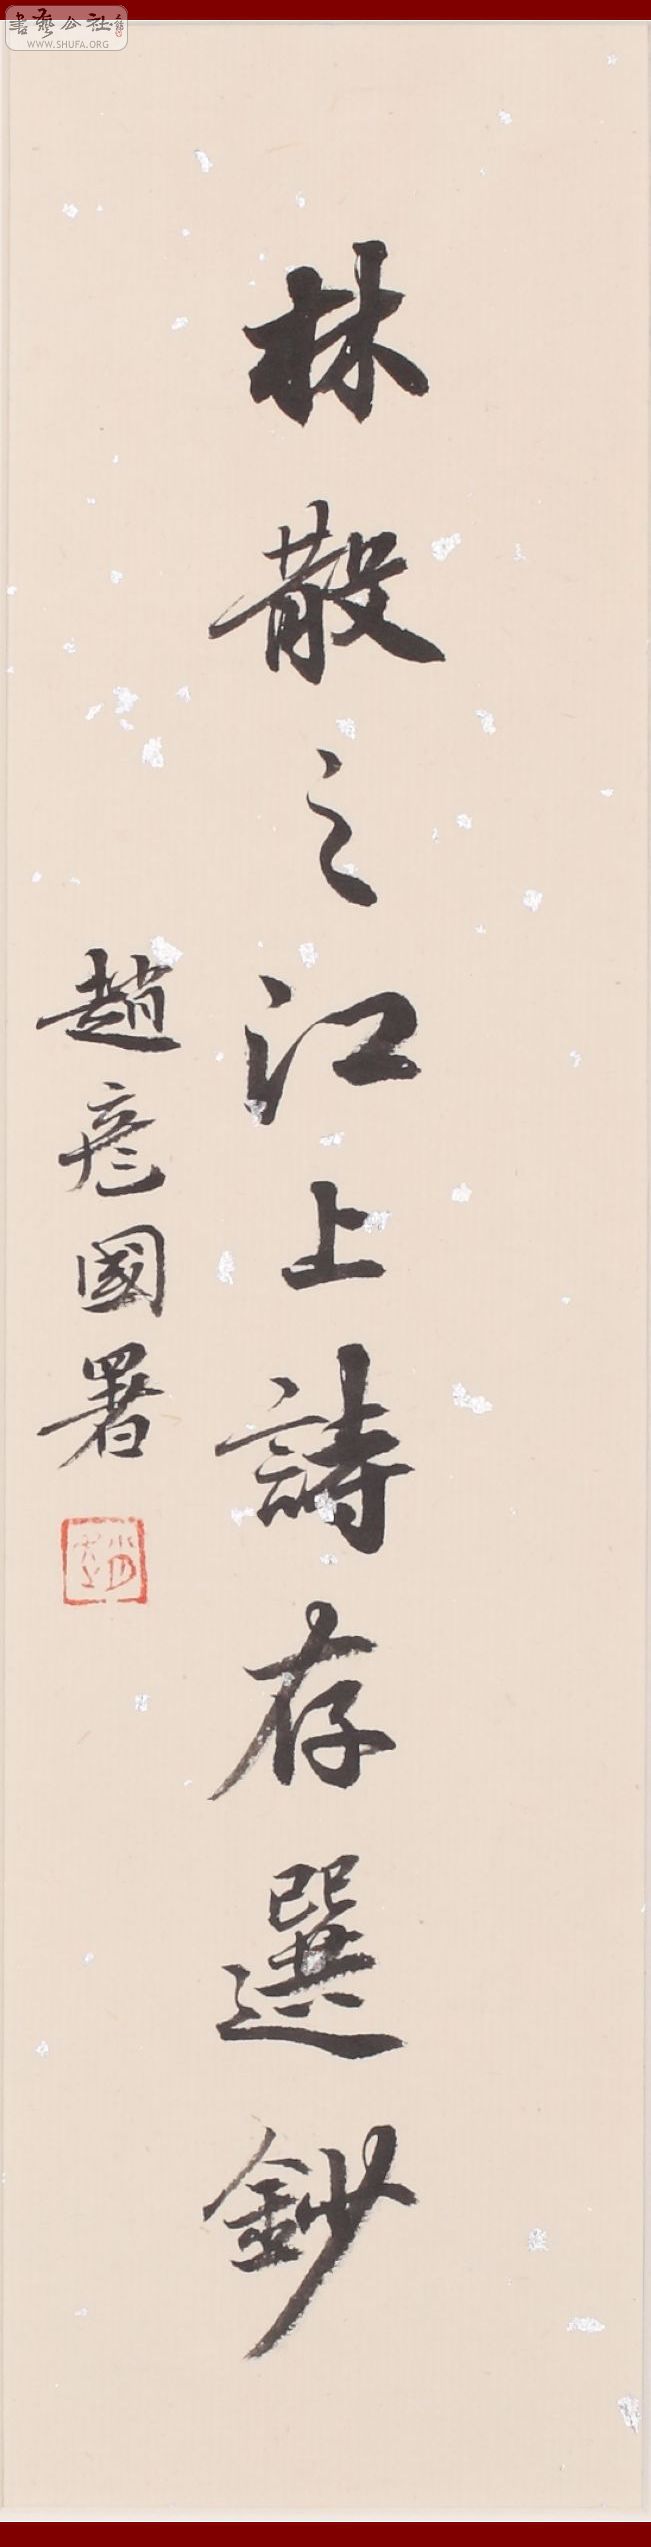 書藝公社
WWW.SHUFA.ORG
林散之江上詩存選鈔
趙彥國署